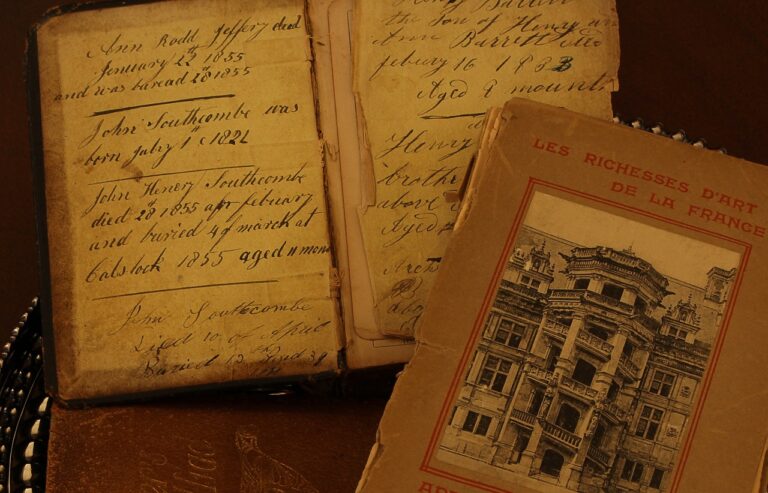 Ann Rodd Jeffery died
January 22th 1855
and was buread 28 1855
John Southcombe was
born July 1st 1821
John Henery Southcombe
died 28 1855 febuary
and buried 4 of march at
Calstock 1855 aged 11 mon
John Southcombe
Died 10 of April
Buried 13
Henry Barrett
the Son of Henry an
Ann Barrett died
febuary 16 1883
Aged 8 mounth
Henry
brothe
above
Aged
abo
LES RICHESSES D'ART
DE LA FRANCE